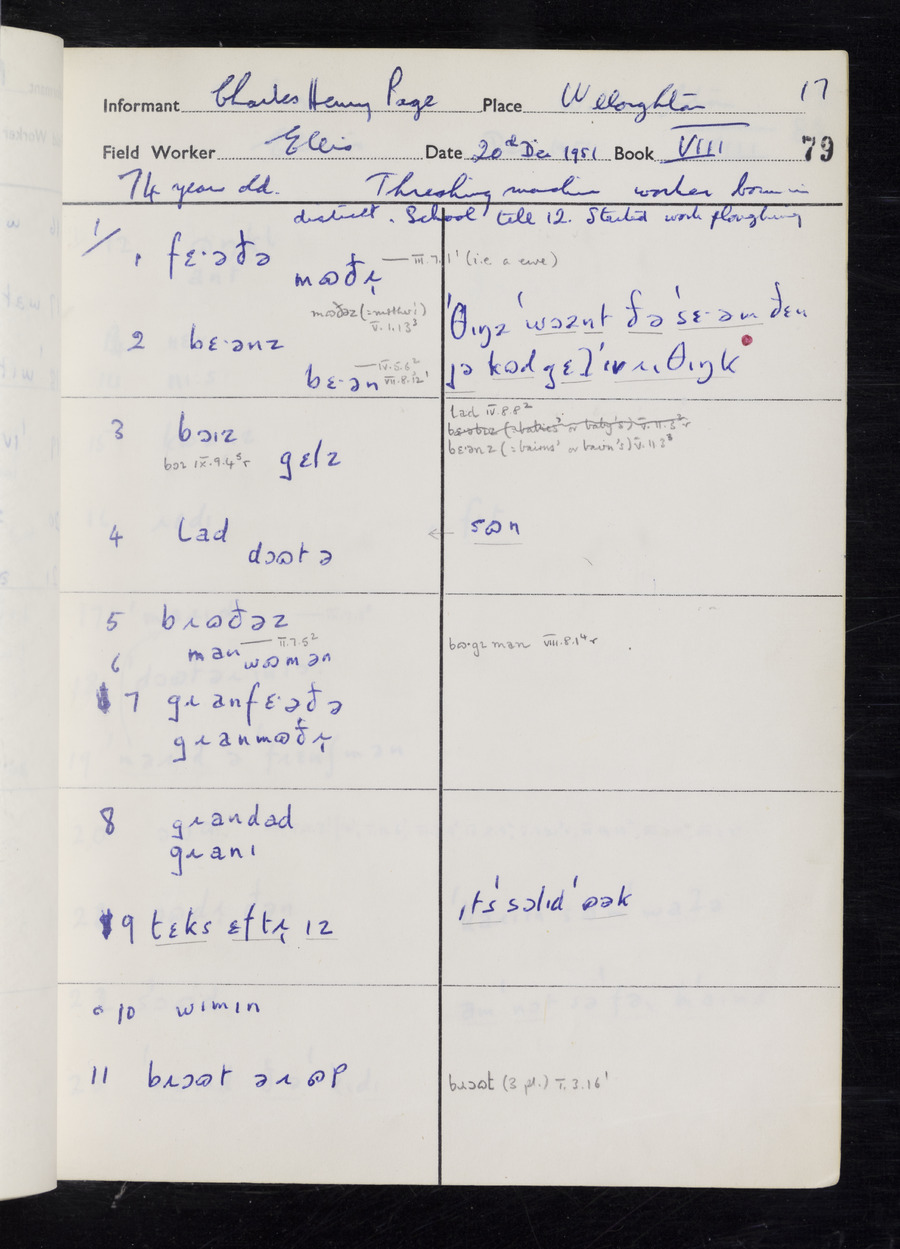 Informant Charles Henry Page Place Willoughton 17
Field Worker Ellis Date 20th Dec 1951 Book VIII 79
74 years old. Threshing machine worker born in
district. School till 12. Started work ploughing
1/
1 fɛ·əðə
mʊðɪ̣ — III.7.1' (i.e. a ewe)
mʊðəz (= mother's)
V.1.13³
2 bɛ·ənz
bɛ·ən — IV.5.6² VII.8.12'
'θɪŋz 'wɔznt ðə 'sɛ·əm ðɛn
jə kʊd gɛt 'ɪvrɪθɪŋk
3 bɔɪz
bɔɪ IX.9.4⁵ r
gɛlz
lad IV.8.8²
bɛ·ənz (= bairns' or bairn's) V.11.2³
4 lad
dɔʊtə
← sʊn
5 brʊðəz
6 man — II.7.5²
wʊmən
man VIII.8.1⁴ r
7 granfɛ·əðə
granmʊðɪ̣
8 grandad
granɪ
9 tɛks ɛftɪ̣ ɪz
ɪts 'sɔlɪd 'ʊək
10 wɪmɪn
11 brɔʊt əɹ ʊp
brɔʊt (3 pl.) I.3.16'